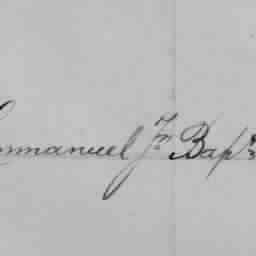 Emmanuel Jn Bapte